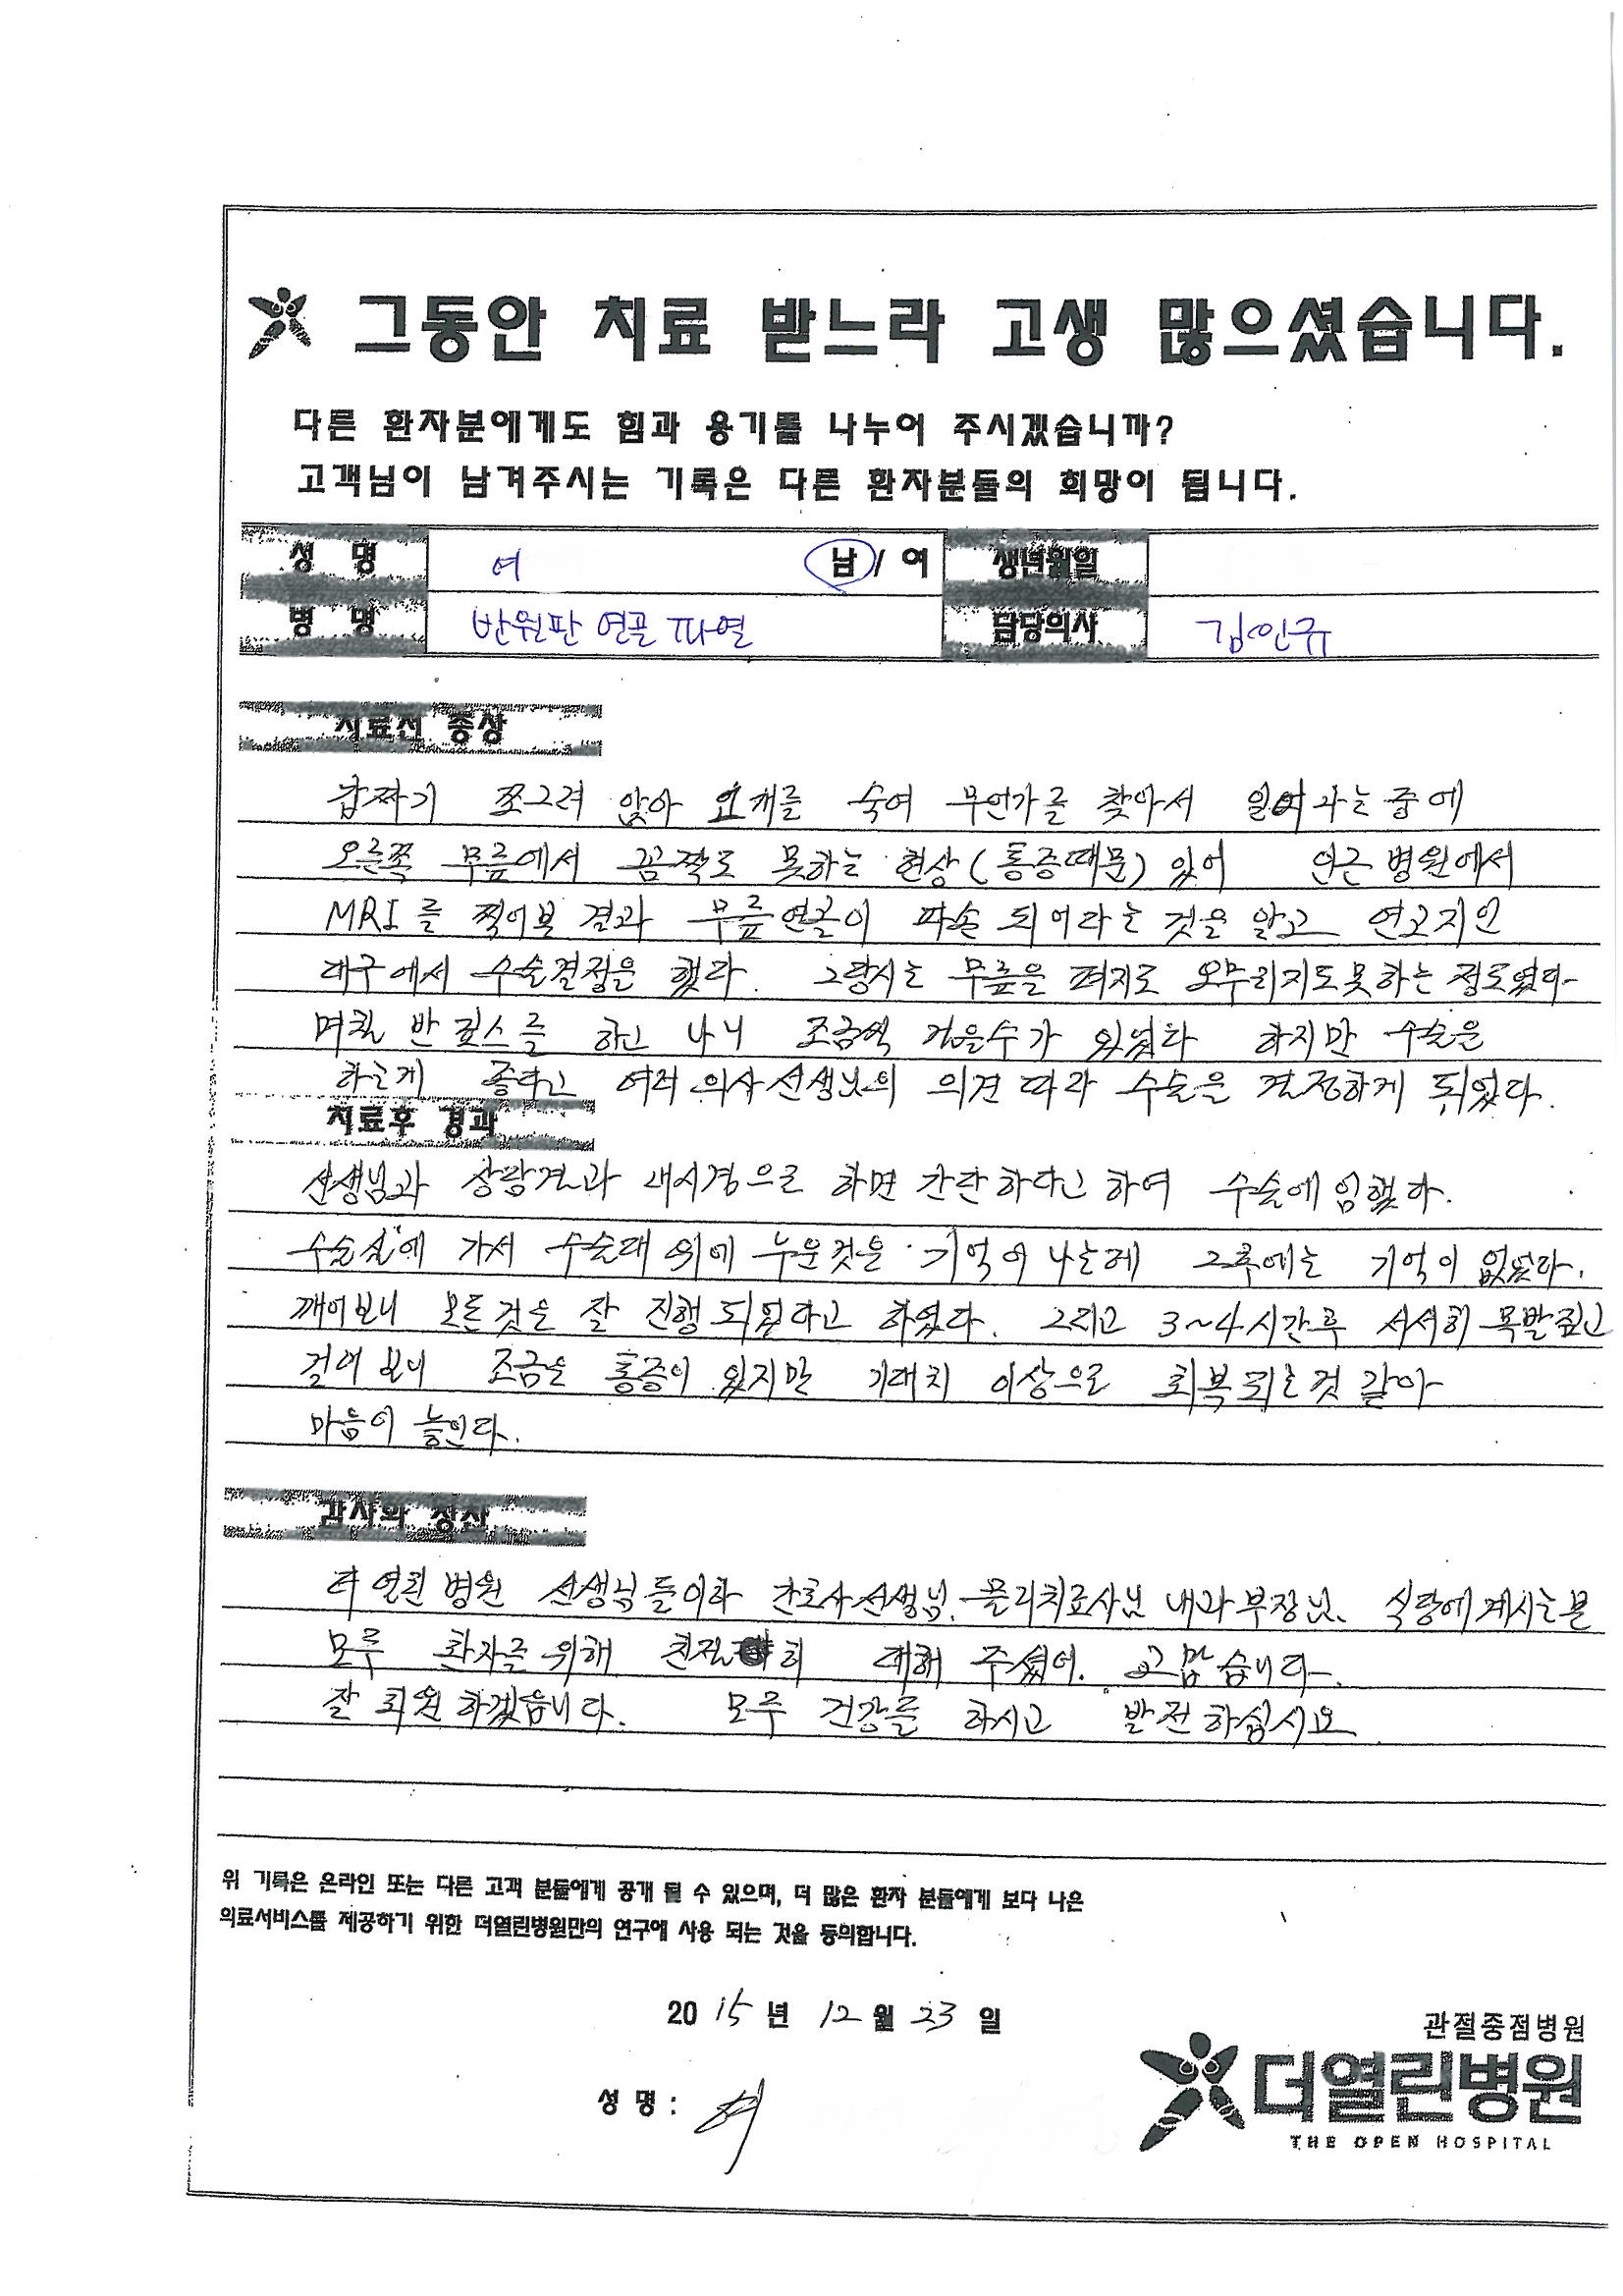 그동안 치료 받느라 고생 많으셨습니다.
다른 환자분에게도 힘과 용기를 나누어 주시겠습니까?
고객님이 남겨주시는 기록은 다른 환자분들의 희망이 됩니다.
성 명 여 남 / 여 생년월일
병 명 반월판 연골 파열 담당의사 김인규
치료전 증상
갑짜기 쪼그려 앉아 고개를 숙여 무언가를 찾아서 일어나는 중에
오른쪽 무릎에서 꼼짝도 못하는 현상(통증때문) 있어 인근 병원에서
MRI를 찍어본 결과 무릎연골이 파손 되어라는 것을 알고 연고지인
대구에서 수술결정을 했다. 그당시는 무릎을 펴지도 오무리지도못하는 정도였다
며칠 반 깁스를 하고 나니 조금씩 걸을수가 있었다 하지만 수술을
하는게 좋다고 여러 의사선생님의 의견 따라 수술을 결정하게 되었다.
치료후 경과
선생님과 상담결과 내시경으로 하면 간단하다고 하여 수술에 임했다.
수술실에 가서 수술대 위에 누운것은 기억이 나는데 그후에는 기억이 없었다.
깨어보니 모든것은 잘 진행 되었다고 하였다. 그리고 3~4시간후 서서히 목발 짚고
걸어 보니 조금은 통증이 있지만 기대치 이상으로 회복되는것 같아
마음이 놓인다.
감사와 칭찬
더 열린 병원 선생님들이하 간호사선생님. 물리치료사님 내과부장님. 식당에계시는분
모두 환자를 위해 친절히 대해 주셨어. 고맙습니다.
잘 퇴원 하겠습니다. 모두 건강를 하시고 발전하십시요
위 기록은 온라인 또는 다른 고객 분들에게 공개 될 수 있으며, 더 많은 환자 분들에게 보다 나은
의료서비스를 제공하기 위한 더열린병원만의 연구에 사용 되는 것을 동의합니다.
2015년 12월 23일
성 명 : 여
관절중점병원
더열린병원
THE OPEN HOSPITAL